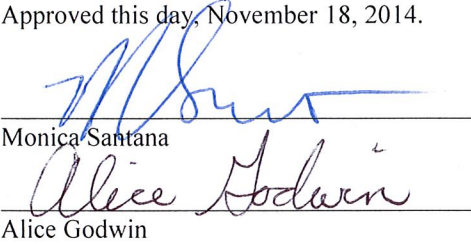 Approved this day, November 18, 2014.
M Sant
Monica Santana
Alice Godwin
Alice Godwin